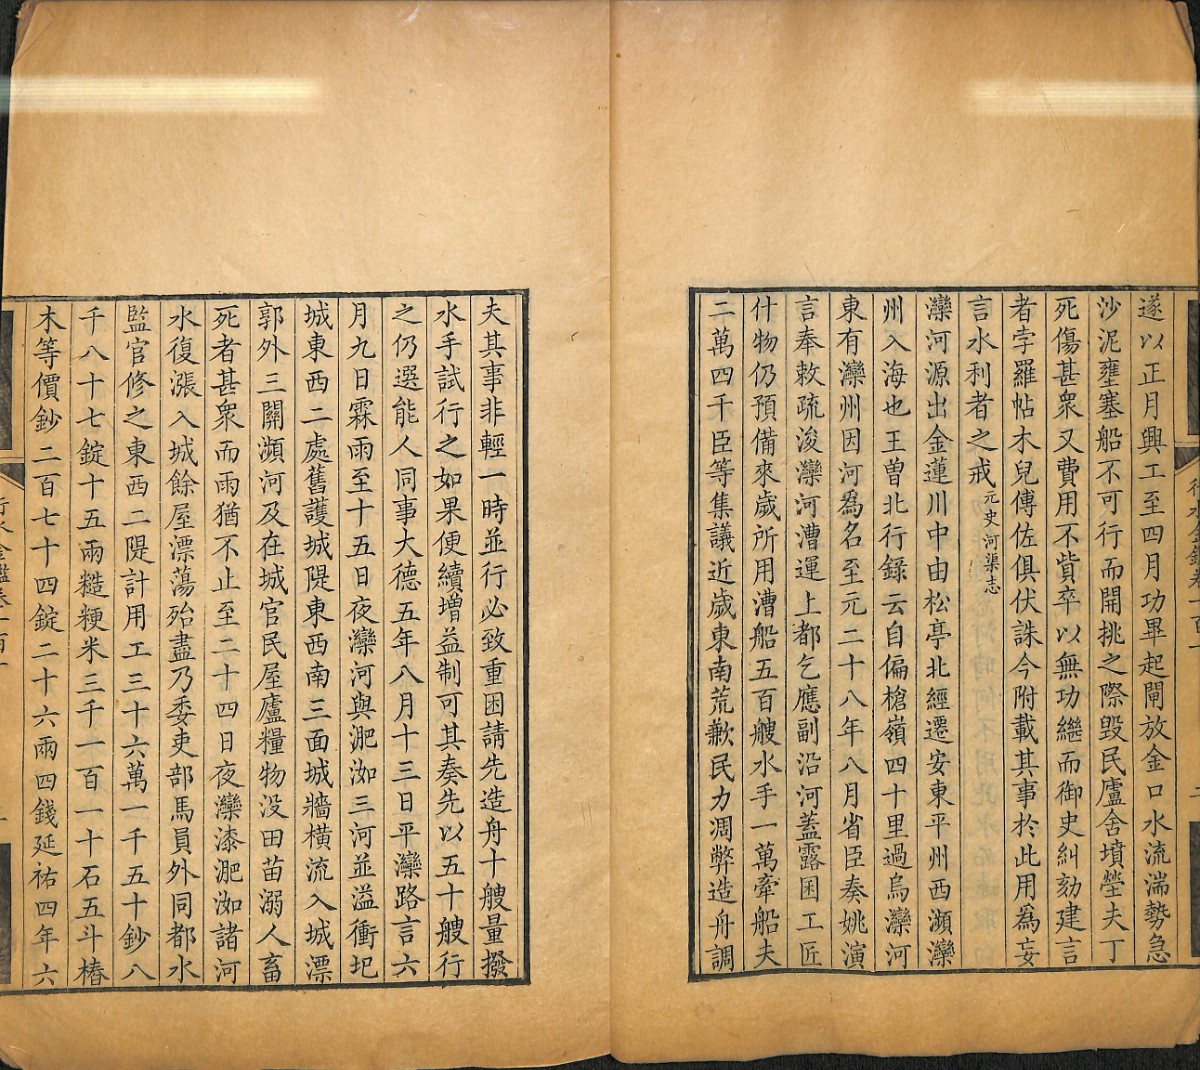 遂以正月興工至四月功畢起閘放金口水流湍勢急
沙泥壅塞船不可行而開挑之際毀民廬舍墳塋夫丁
死傷甚衆又費用不貲卒以無功繼而御史糾劾建言
者孛羅帖木兒傅佐俱伏誅今附載其事於此用爲妄
言水利者之戒元史河渠志
灤河源出金蓮川中由松亭北經遷安東平州西瀕灤
州入海也王曾北行錄云自偏槍嶺四十里過烏灤河
東有灤州因河爲名至元二十八年八月省臣奏姚演
言奉敕疏浚灤河漕運上都乞應副沿河蓋露囷工匠
什物仍預備來歲所用漕船五百艘水手一萬牽船夫
二萬四千臣等集議近歲東南荒歉民力凋弊造舟調
夫其事非輕一時並行必致重困請先造舟十艘量撥
水手試行之如果便續增益制可其奏先以五十艘行
之仍選能人同事大德五年八月十三日平灤路言六
月九日霖雨至十五日夜灤河與淝洳三河並溢衝圯
城東西二處舊護城隄東西南三面城牆橫流入城漂
郭外三關瀕河及在城官民屋廬糧物没田苗溺人畜
死者甚衆而雨猶不止至二十四日夜灤漆淝洳諸河
水復漲入城餘屋漂蕩殆盡乃委吏部馬員外同都水
監官修之東西二隄計用工三十六萬一千五十鈔八
千八十七錠十五兩糙粳米三千一百一十石五斗樁
木等價鈔二百七十四錠二十六兩四錢延祐四年六
行水金鑑卷一百一